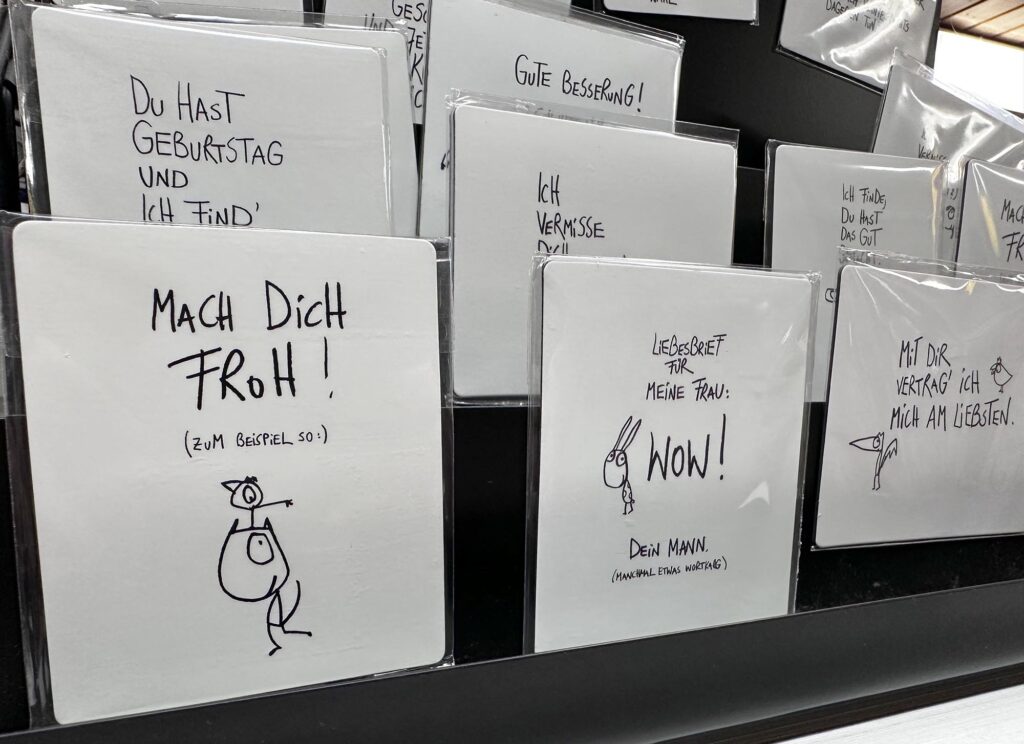 GUTE BESSERUNG!
DU HAST
GEBURTSTAG
UND
ICH FIND'
ICH
VERMISSE
DICH
ICH FINDE,
DU HAST
DAS GUT
MACH DICH
FROH!
(ZUM BEISPIEL SO:)
LIEBESBRIEF
FÜR
MEINE FRAU:
WOW!
DEIN MANN.
(MANCHMAL ETWAS WORTKARG)
MIT DIR
VERTRAG' ICH
MICH AM LIEBSTEN.